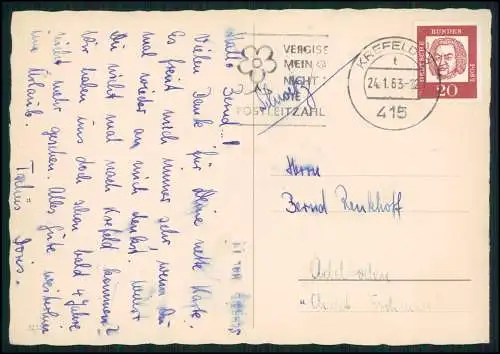 Hallo Bernd...!
Vielen Dank für Deine nette Karte.
Es freut mich immer sehr, wenn Du
mal wieder an mich denkst. Willst
Du nicht mal nach Krefeld kommen?
Wir haben uns doch schon bald 4 Jahre
nicht mehr gesehen. Alles Gute weiterhin
im Urlaub.
Tschüs Doris.
VERGISS
MEIN
NICHT
DIE
POSTLEITZAHL
KREFELD
t
24.1.63-12
415
DEUTSCHE
BUNDES
POST
20
Herrn
Bernd Renkhoff
Adelboden